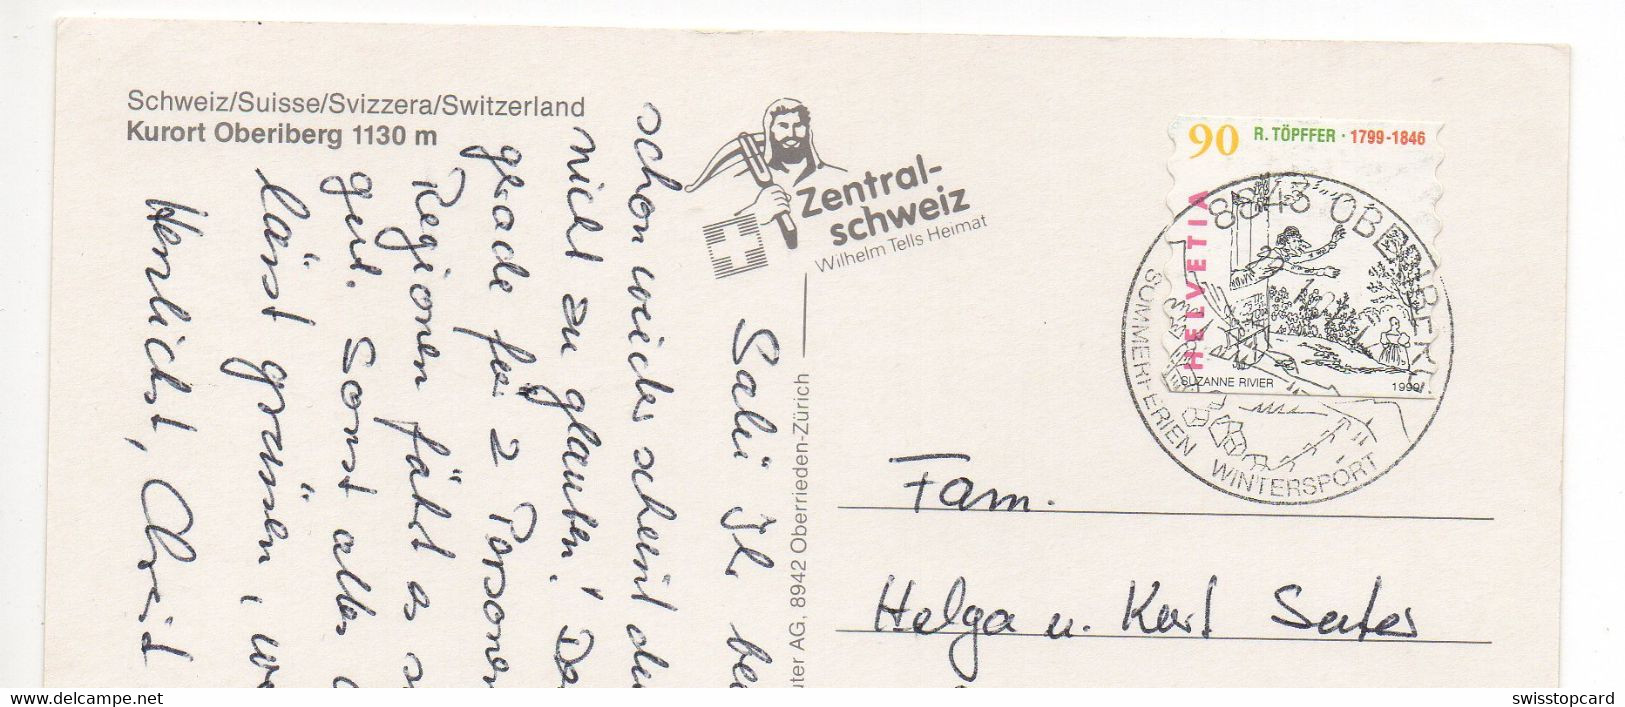 Schweiz/Suisse/Svizzera/Switzerland
Kurort Oberiberg 1130 m
Zentral-
schweiz
Wilhelm Tells Heimat
90 R. TÖPFFER · 1799-1846
HELVETIA
SUZANNE RIVIER 1999
8843 OBERIBERG
SOMMERFERIEN WINTERSPORT
Salü Ihr
schon wieder scheint
nicht zu glauben!
grade für 2
Regionen fährt
gut. Sonst alles
lässt grüssen,
Herzlichst,
uter AG, 8942 Oberrieden-Zürich
Fam.
Helga u. Kurt Suter
www.delcampe.net
swisstopcard